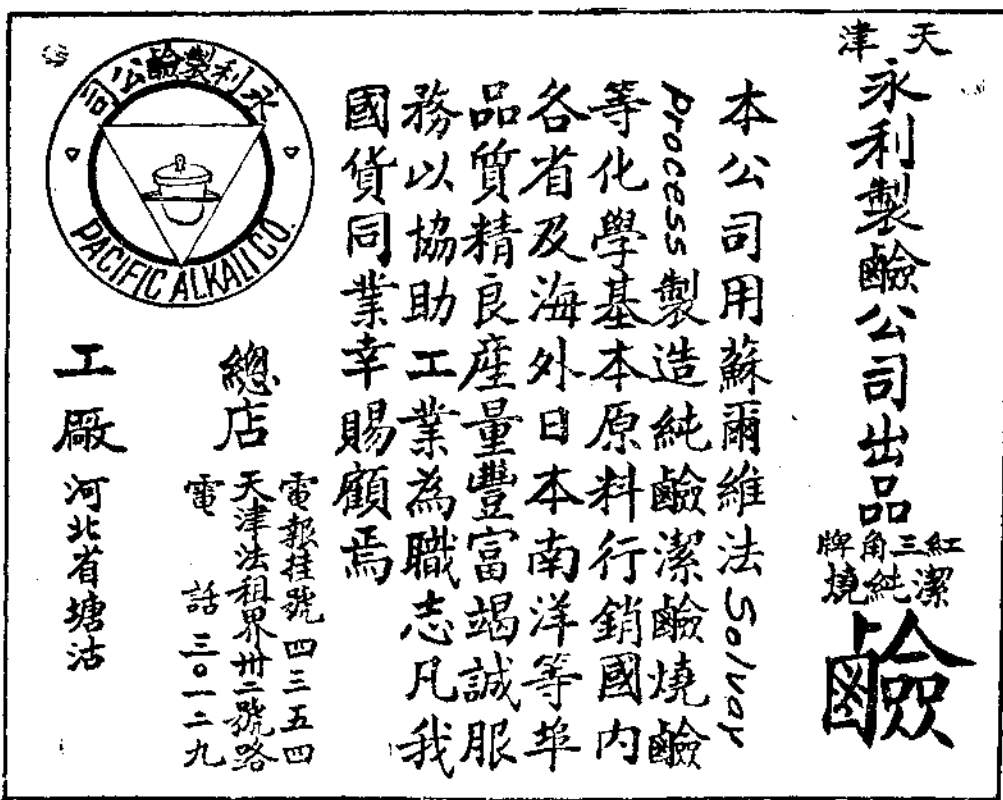 天津
永利製鹼公司出品
紅三角牌
潔純燒
鹼
本公司用蘇爾維法Solvay
Process製造純鹼潔鹼燒鹼
等化學基本原料行銷國内
各省及海外日本南洋等埠
品質精良產量豐富竭誠服
務以協助工業為職志凡我
國貨同業幸賜顧焉
永利製鹼公司
PACIFIC ALKALI CO.
總店
電報挂號四三五四
天津法租界卅二號路
電話三〇一二九
工廠
河北省塘沽